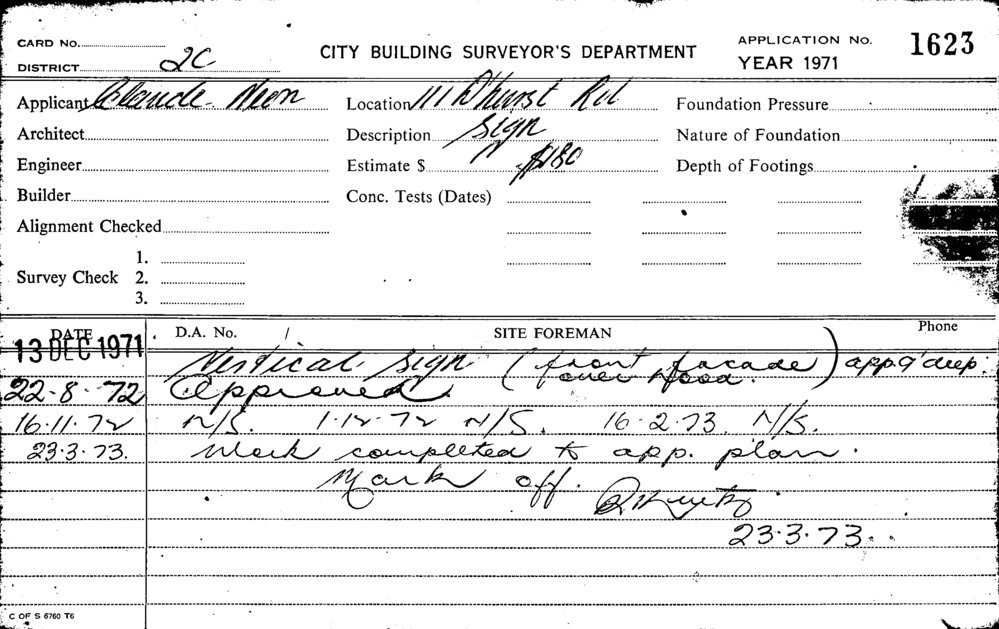 CARD No.
DISTRICT 2C
CITY BUILDING SURVEYOR'S DEPARTMENT
APPLICATION No. 1623
YEAR 1971
Applicant Claude Neon
Location 111 D'hurst Rd
Foundation Pressure
Architect
Description Sign
Nature of Foundation
Engineer
Estimate $ $180
Depth of Footings
Builder
Conc. Tests (Dates)
Alignment Checked
1.
Survey Check 2.
3.
DATE
D.A. No. /
SITE FOREMAN
Phone
13 DEC 1971
Vertical Sign (front facade over hood.) app. 9" deep.
22-8-72 Approved.
16.11.72 N/S. 1-12-72 N/S. 16.2.73. N/S.
23.3.73. Work completed to app. plan.
Mark off.
23.3.73.
C OF S 6760 T6